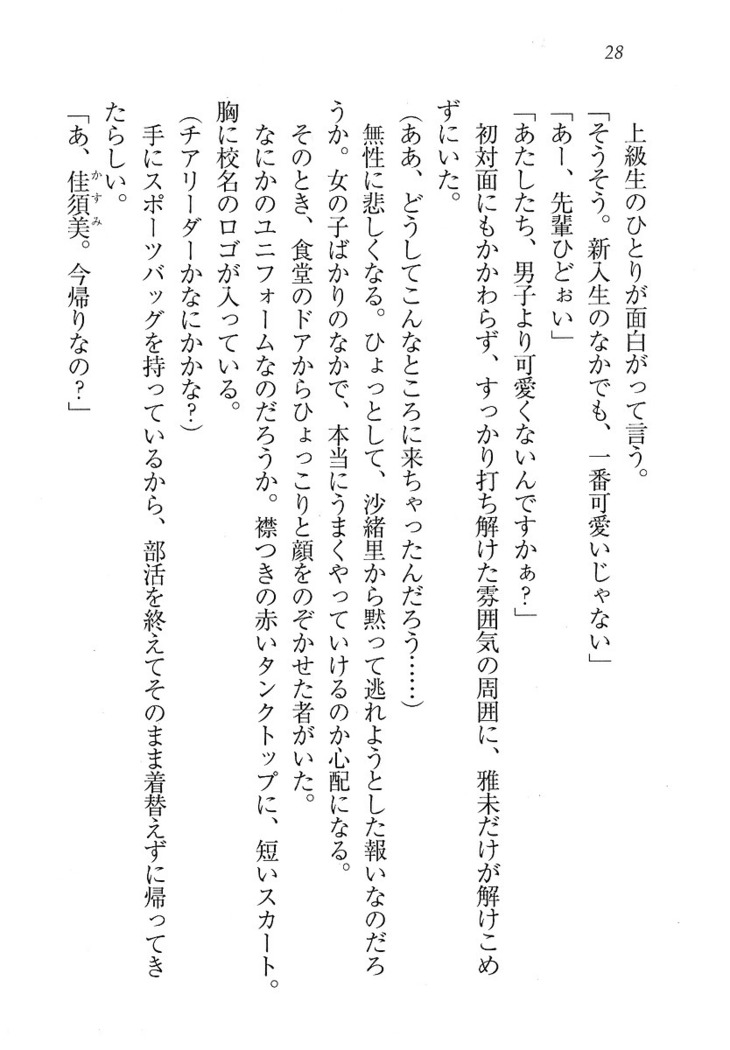 28
上級生のひとりが面白がって言う。
「そうそう。新入生のなかでも、一番可愛いじゃない」
「あー、先輩ひどぉい」
「あたしたち、男子より可愛くないんですかぁ？」
初対面にもかかわらず、すっかり打ち解けた雰囲気の周囲に、雅未だけが解けこめ
ずにいた。
（ああ、どうしてこんなところに来ちゃったんだろう……）
無性に悲しくなる。ひょっとして、沙緒里から黙って逃れようとした報いなのだろ
うか。女の子ばかりのなかで、本当にうまくやっていけるのか心配になる。
そのとき、食堂のドアからひょっこりと顔をのぞかせた者がいた。
なにかのユニフォームなのだろうか。襟つきの赤いタンクトップに、短いスカート。
胸に校名のロゴが入っている。
（チアリーダーかなにかかな？）
手にスポーツバッグを持っているから、部活を終えてそのまま着替えずに帰ってき
たらしい。
「あ、佳須美。今帰りなの？」
かすみ